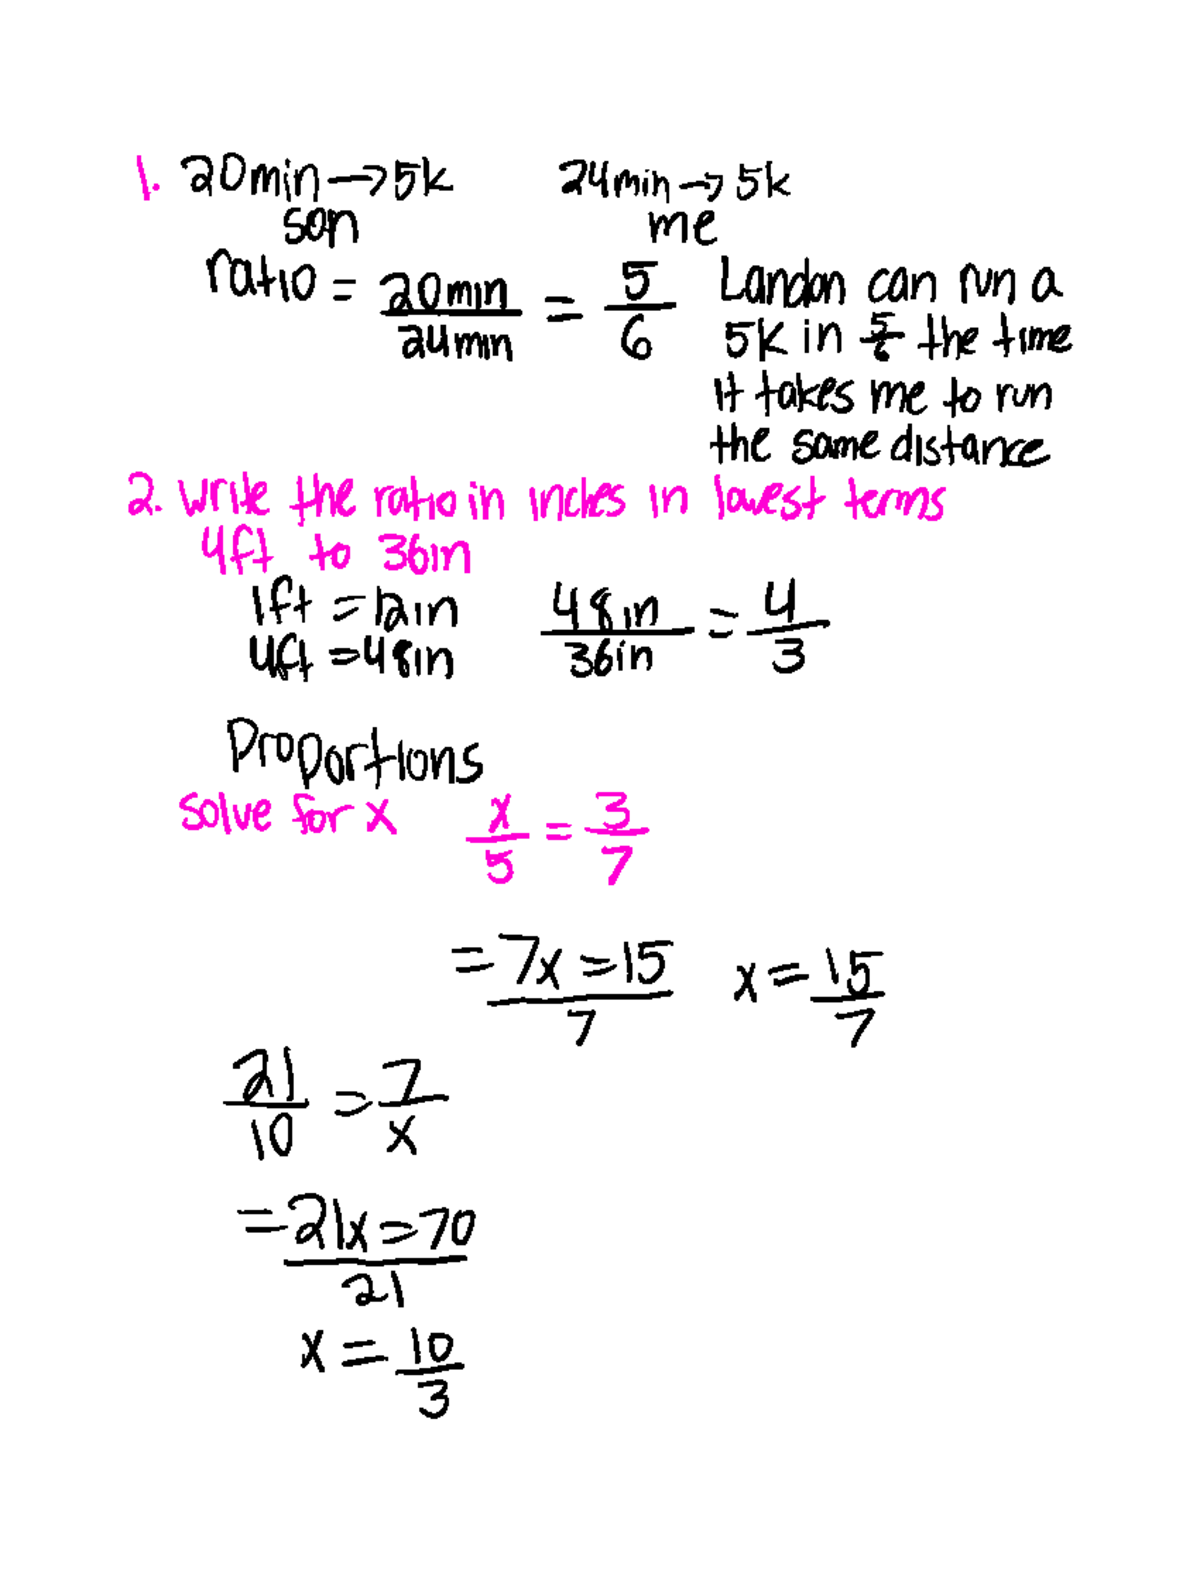 1. 20min→5k 24min→5k
son me
ratio = 20min/24min = 5/6 Landon can run a
5K in 5/6 the time
it takes me to run
the same distance
2. write the ratio in inches in lowest terms
4ft to 36in
1ft = 12in 48in/36in = 4/3
4ft = 48in
Proportions
solve for x x/5 = 3/7
= 7x = 15 / 7 x = 15/7
21/10 = 7/x
= 21x = 70 / 21
x = 10/3